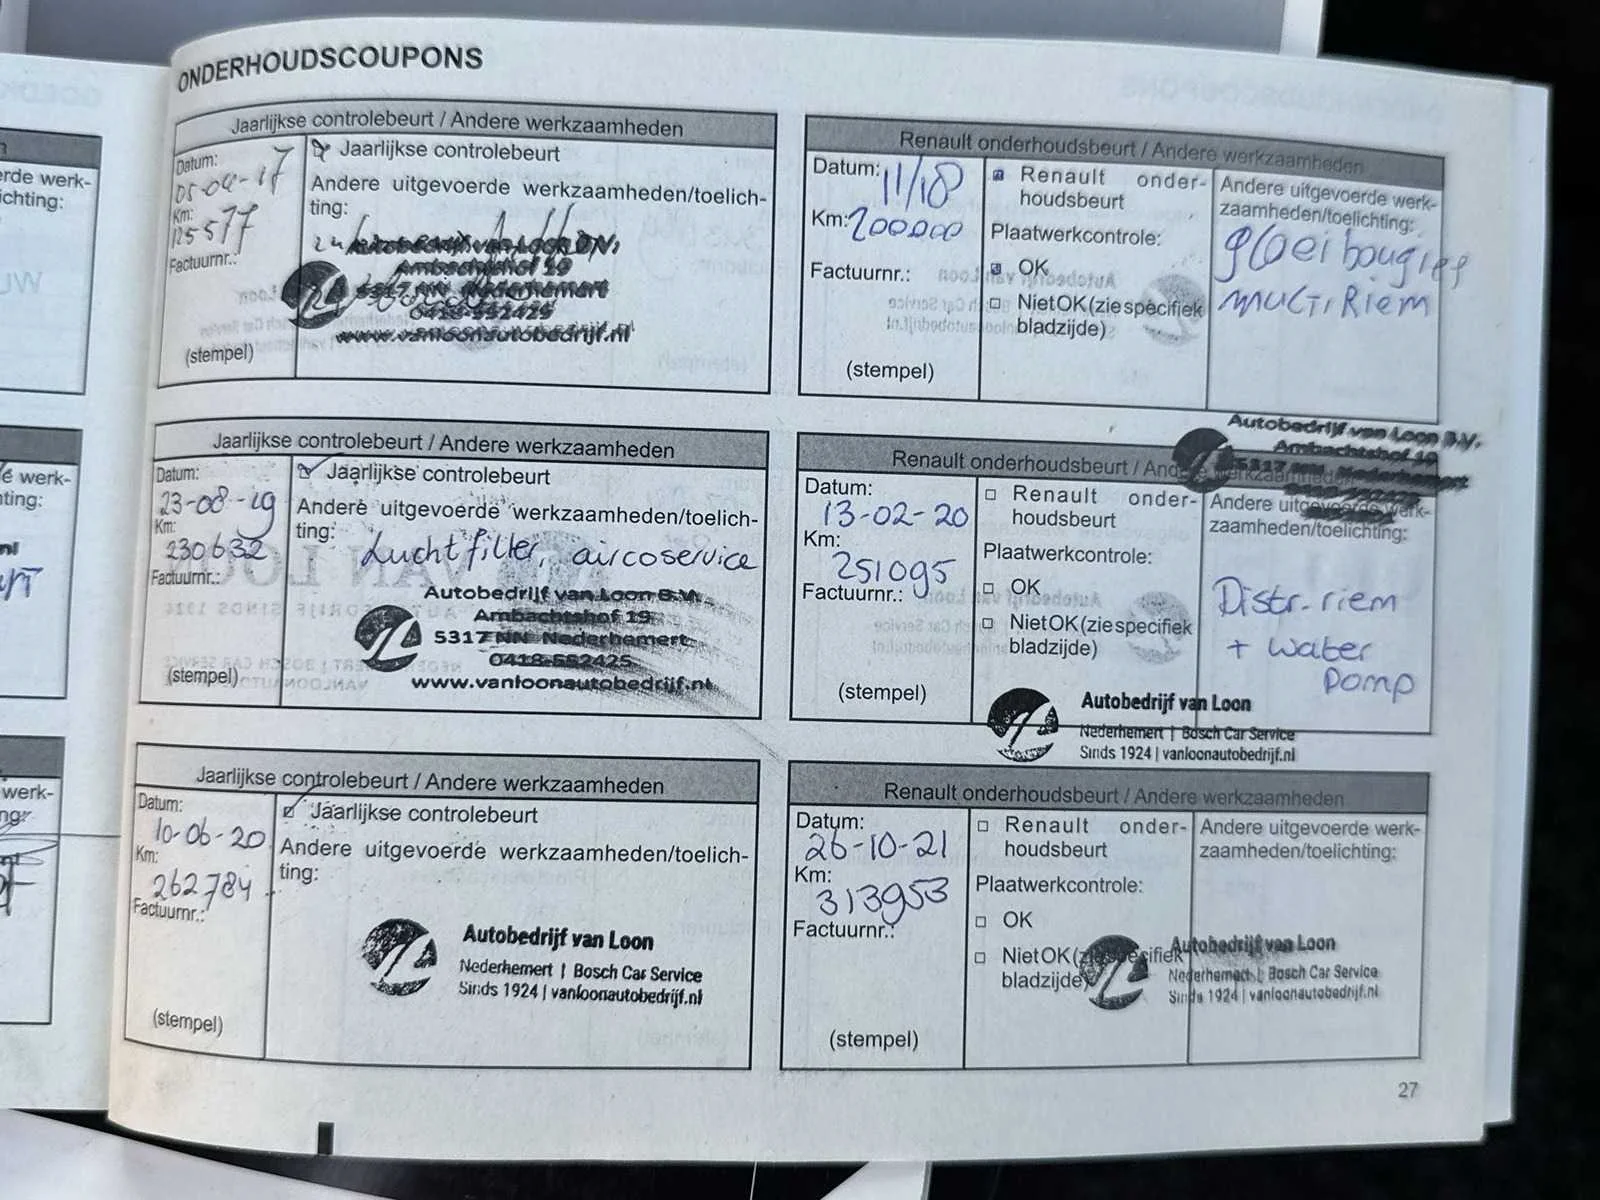 ONDERHOUDSCOUPONS
Jaarlijkse controlebeurt / Andere werkzaamheden
Datum:
05-04-17
Km:
125577
Factuurnr.:
(stempel)
Jaarlijkse controlebeurt
Andere uitgevoerde werkzaamheden/toelich-
ting:
Ambachtshof 19
5317 NN Nederhemert
0418-552425
www.vanloonautobedrijf.nl
Renault onderhoudsbeurt / Andere werkzaamheden
Datum: 11/18
Km: 200000
Factuurnr.:
(stempel)
Renault onder-
houdsbeurt
Plaatwerkcontrole:
OK
Niet OK (zie specifiek
bladzijde)
Andere uitgevoerde werk-
zaamheden/toelichting:
gloeibougies
MULTIRiem
Jaarlijkse controlebeurt / Andere werkzaamheden
Datum:
23-08-19
Km:
230632
Factuurnr.:
(stempel)
Jaarlijkse controlebeurt
Andere uitgevoerde werkzaamheden/toelich-
ting:
Luchtfilter, aircoservice
Autobedrijf van Loon B.V.
Ambachtshof 19
5317 NN Nederhemert
0418-552425
www.vanloonautobedrijf.nl
Autobedrijf van Loon B.V.
Ambachtshof 19
5317 NN Nederhemert
Renault onderhoudsbeurt / Andere werkzaamheden
Datum:
13-02-20
Km:
251095
Factuurnr.:
(stempel)
Renault onder-
houdsbeurt
Plaatwerkcontrole:
OK
Niet OK (zie specifiek
bladzijde)
Andere uitgevoerde werk-
zaamheden/toelichting:
Distr.-riem
+ water
pomp
Autobedrijf van Loon
Nederhemert | Bosch Car Service
Sinds 1924 | vanloonautobedrijf.nl
Jaarlijkse controlebeurt / Andere werkzaamheden
Datum:
10-06-20
Km:
262784
Factuurnr.:
(stempel)
Jaarlijkse controlebeurt
Andere uitgevoerde werkzaamheden/toelich-
ting:
Autobedrijf van Loon
Nederhemert | Bosch Car Service
Sinds 1924 | vanloonautobedrijf.nl
Renault onderhoudsbeurt / Andere werkzaamheden
Datum:
26-10-21
Km:
313953
Factuurnr.:
(stempel)
Renault onder-
houdsbeurt
Plaatwerkcontrole:
OK
Niet OK (zie specifiek
bladzijde)
Andere uitgevoerde werk-
zaamheden/toelichting:
Autobedrijf van Loon
Nederhemert | Bosch Car Service
Sinds 1924 | vanloonautobedrijf.nl
27